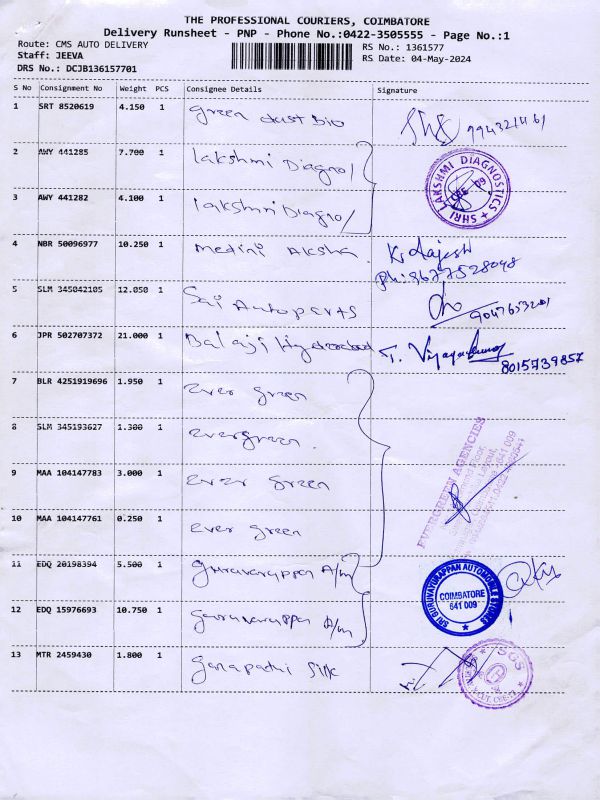 THE PROFESSIONAL COURIERS, COIMBATORE
Delivery Runsheet - PNP - Phone No.:0422-3505555 - Page No.:1
Route: CMS AUTO DELIVERY RS No.: 1361577
Staff: JEEVA RS Date: 04-May-2024
DRS No.: DCJB136157701
S No Consignment No Weight PCS Consignee Details Signature
1 SRT 8520619 4.150 1 Green dust bio
2 AWY 441285 7.700 1 Lakshmi Diagno
3 AWY 441282 4.100 1 lakshmi Diagno
SHRI LAKSHMI DIAGNOSTICS
CBE 09
4 NBR 50096977 10.250 1 Medini Aksha K. Rajesh
ph: 9677528048
5 SLM 345042105 12.050 1 Sai Autoparts
9047653201
6 JPR 502707372 21.000 1 Balaji Hyderabad T. Vijayakumar
8015739857
7 BLR 4251919696 1.950 1 Ever green
8 SLM 345193627 1.300 1 evergreen.
9 MAA 104147783 3.000 1 Ever green
10 MAA 104147761 0.250 1 Ever green
EVERGREEN AGENCIES
11 EDQ 20198394 5.500 1 guruvaruppan A/m
12 EDQ 15976693 10.750 1 guruvaruppan A/m
SRI GURUVAYURAPPAN AUTOMOBILE STORES
COIMBATORE
641 009
13 MTR 2459430 1.800 1 Ganapathi Silk
SGS